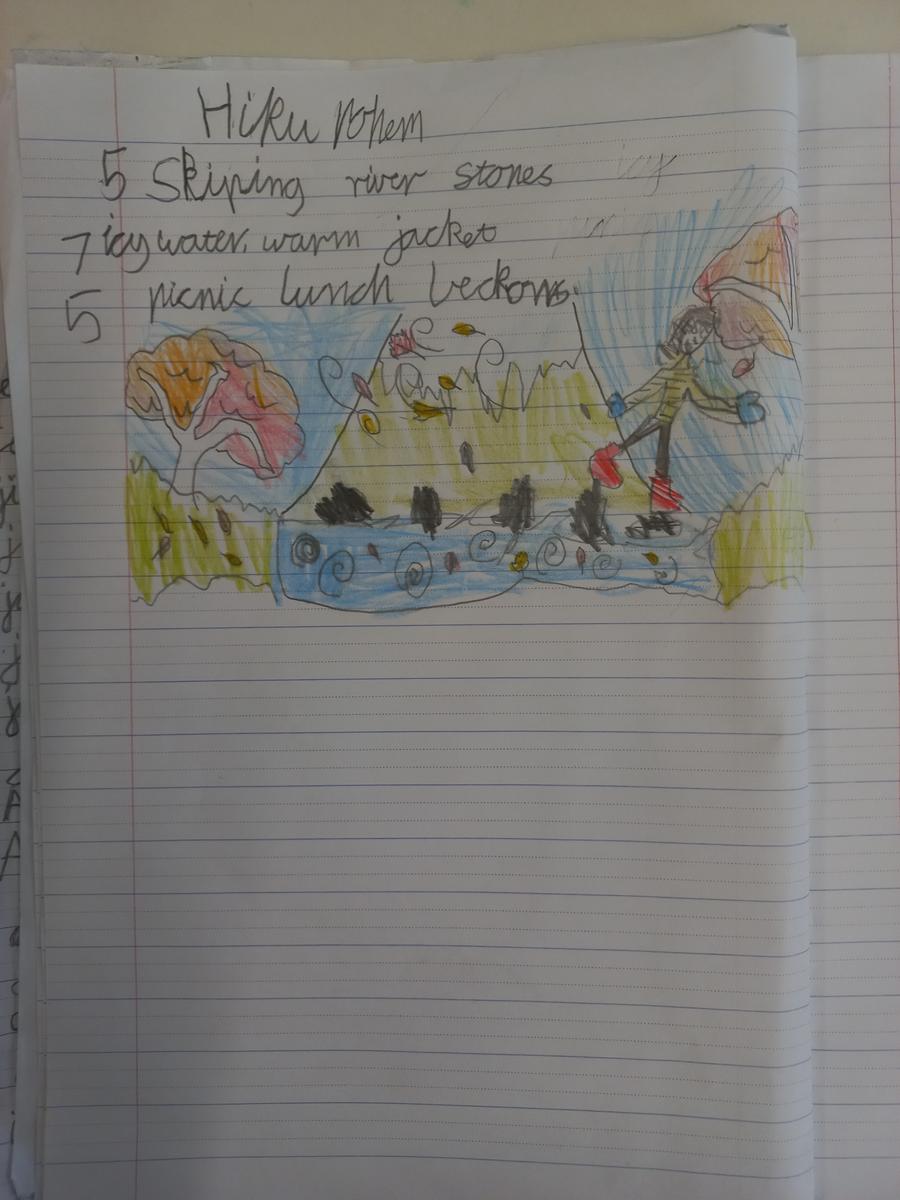 Hiku Pohem
5 Skiping river stones
7 icy water, warm jacket
5 picnic lunch beckons.
icy